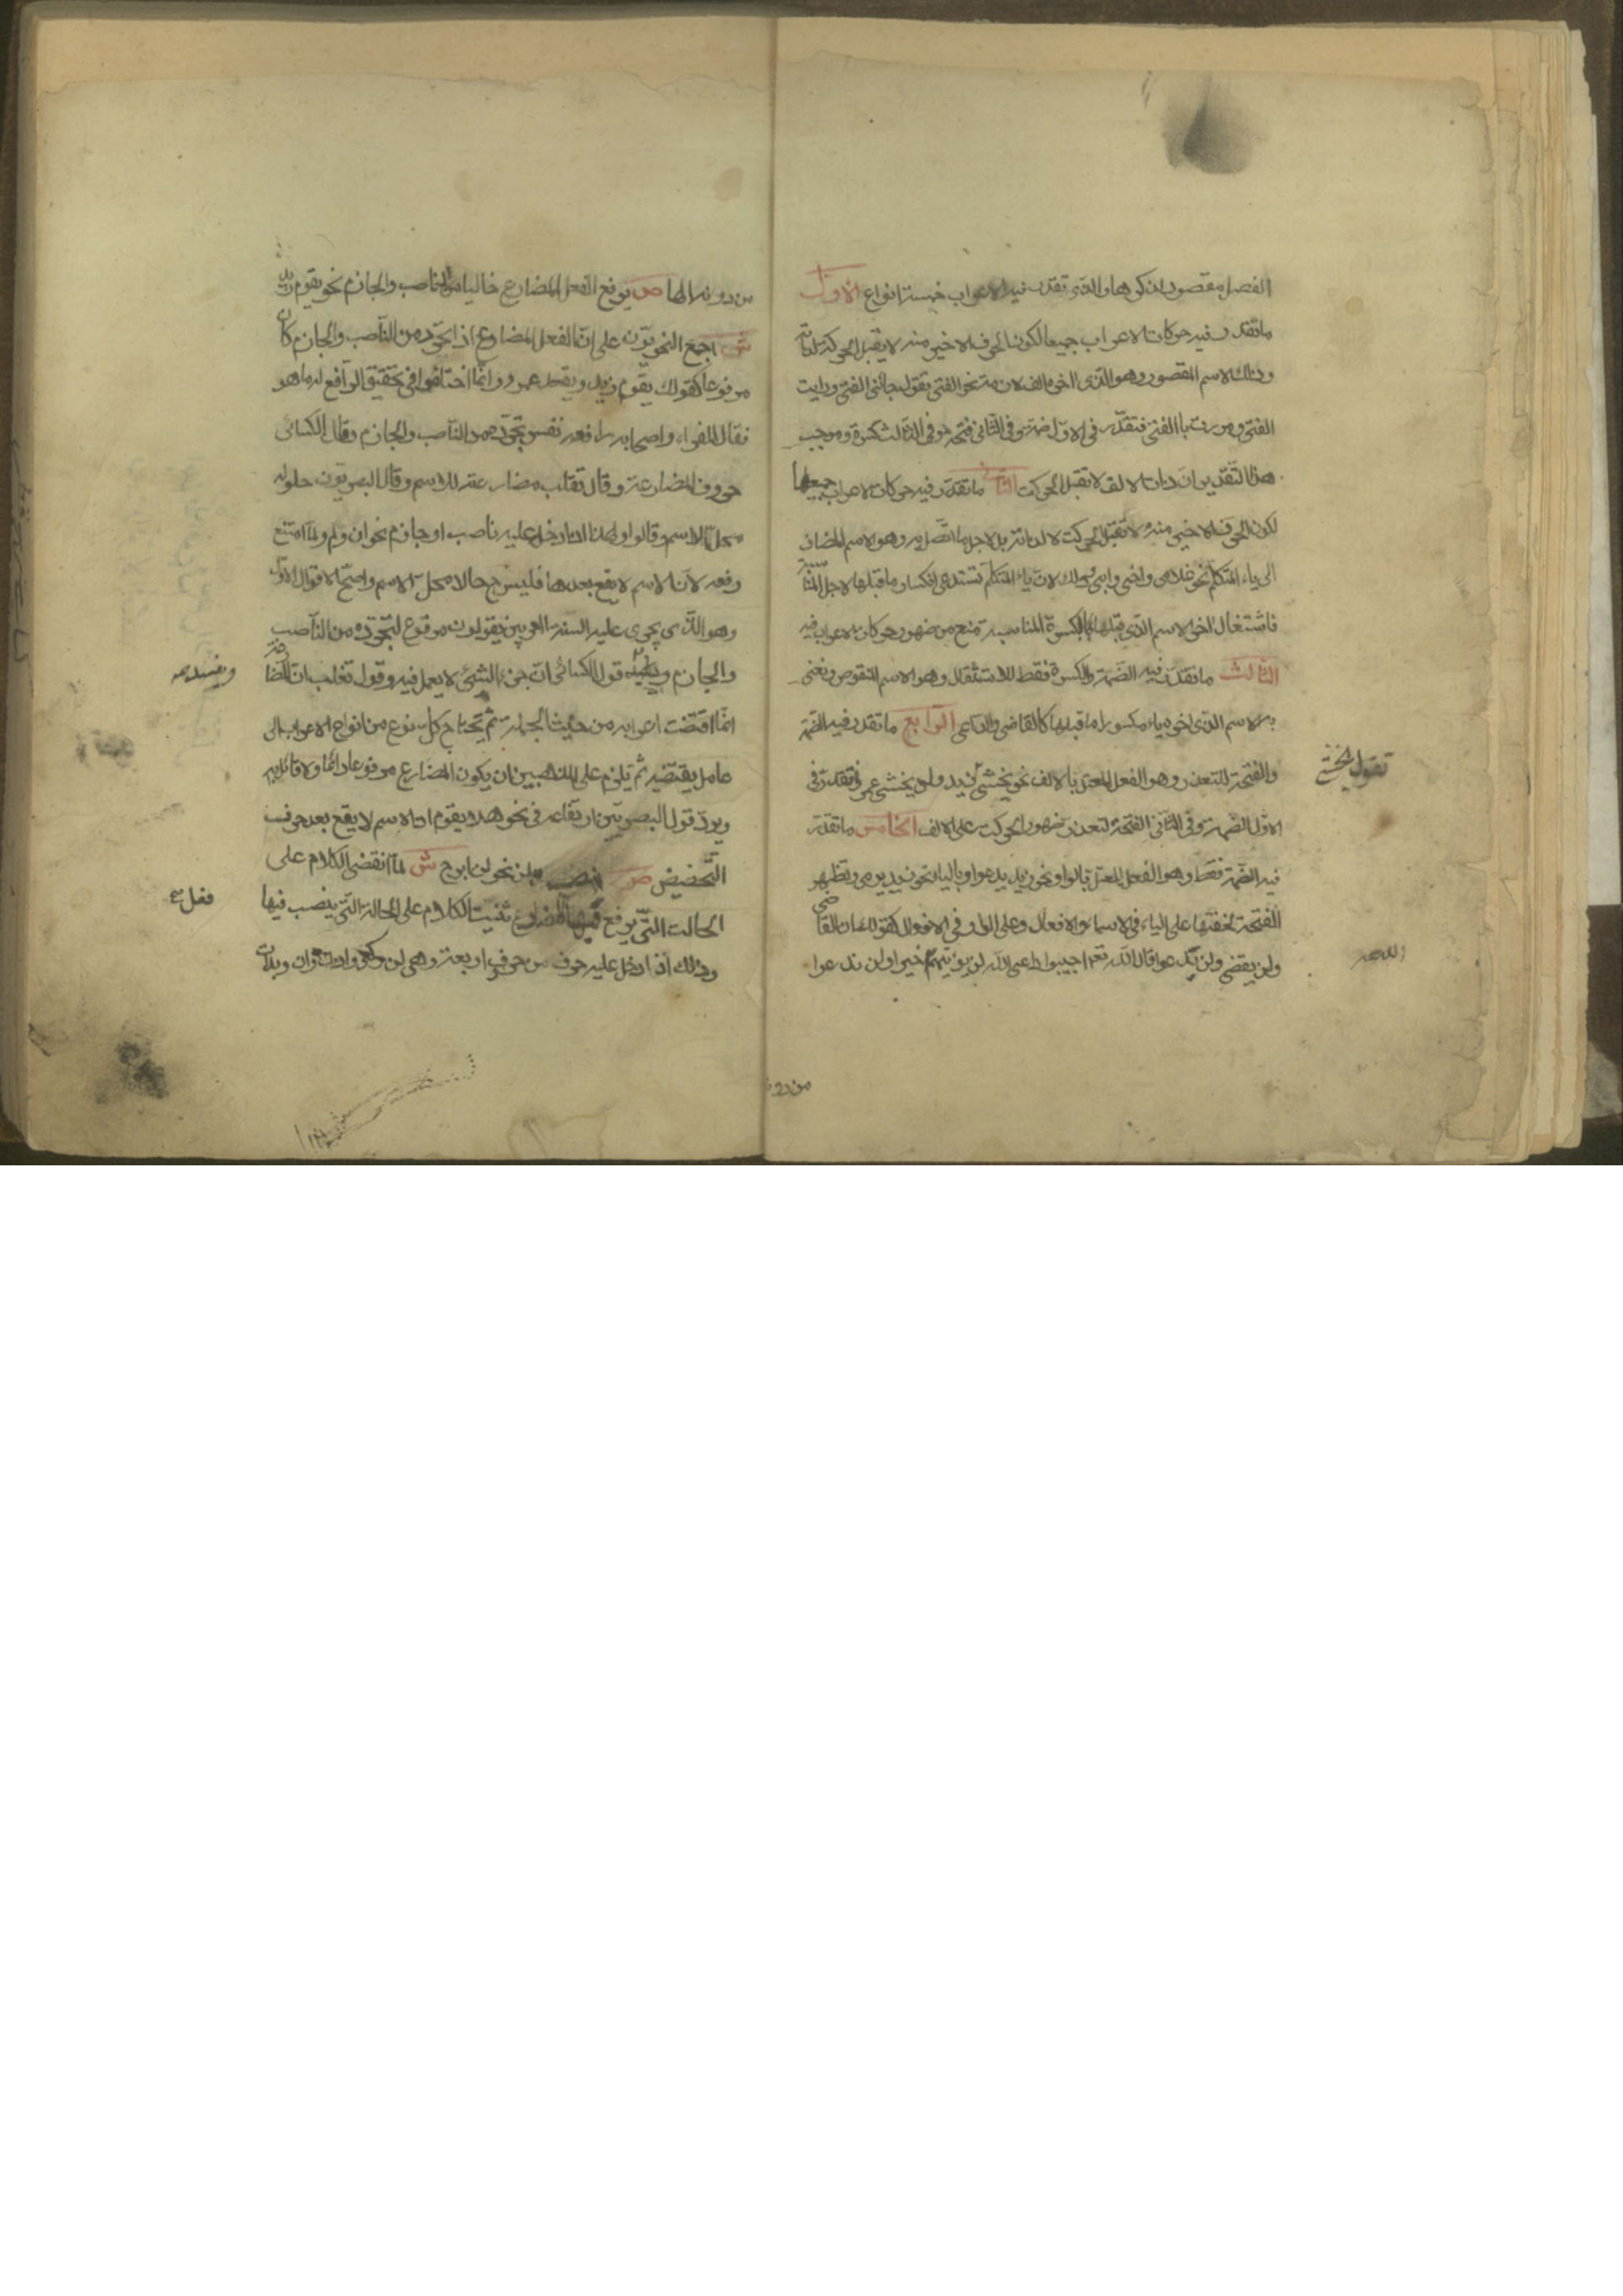 الفصل مقصور لذكرها والذى تقدر فيه الاعراب خمسة انواع الاول
ما تقدر فيه حركات الاعراب جميعا لكون الحرف الاخير منه لا يقبل الحركة لذاته
وذلك الاسم المقصور وهو الذى اخره الف لازمة نحو الفتى تقول جائنى الفتى ورايت
الفتى ومررت باالفتى فتقدر فى الاول ضمة وفى الثانى فتحة وفى الثالث كسرة وموجب
هذا التقدير ان ذات الالف لا تقبل الحركت الثانى ما تقدر فيه حركات الاعراب جميعها
لكون الحرف الاخير منه لا تقبل الحركت لا لذاته بل لاجل ما اتصل به وهو الاسم المضاف
الى ياء المتكلم نحو غلامى واخى وابى وذلك لان ياء المتكلم تستدعى انكسار ما قبلها لاجل المناسبة
فاشتغال اخر الاسم الذى قبلها بالكسرة المناسبة تمنع من ضهور حركات الاعراب فيه
الثالث ما تقدر فيه الضمة والكسرة فقط للاستثقال وهو الاسم المنقوص ونعنى
به الاسم الذى اخره ياء مكسورا ما قبلها كالقاضى والداعى الرابع ما تقدر فيه الضمة
والفتحة للتعذر وهو الفعل المعتل بالالف نحو يخشى زيد ولن يخشى عمرو فتقدر فى
تقول يخشى
الاول الضمة وفى الثانى الفتحة لتعذر ضهور الحركت على الالف الخامس ما تقدر
فيه الضمة فقط وهو الفعل المعتل بالواو نحو زيد يدعوا وبالياء نحو زيد يرمى وتظهر
الفتحة لخفتها على الياء فى الاسماء والافعال وعلى الواو فى الافعال كقولك ان القاضى
ولن يقضى ولن يدعوا قال الله تعم اجيبوا داعى الله لن يؤتيهم خيرا ولن ندعوا
الله
من دونه
من دونه الها ص يرفع الفعل المضارع خاليا من الناصب والجازم نحو يقوم زيد
ش اجمع النحويون على ان الفعل المضارع اذا تجرد من الناصب والجازم كان
مرفوعا كقولك يقوم زيد ويقعد عمرو وانما اختلفوا فى تحقيق الرافع له ما هو
فقال الفراء واصحابه رافعه نفس تجرده من الناصب والجازم وقال الكسائى
حروف المضارعة وقال تعلب مضارعته للاسم وقال البصريون حلوله
محل الاسم وقالوا ولهذا اذا دخل عليه ناصب او جازم نحو ان ولم ولما امتنع
رفعه لان الاسم لا يقع بعدها فليس ح حالا محل الاسم واصح الاقوال الاول
وهو الذى يجرى على السنة المعربين يقولون مرفوع لتجرده من الناصب
والجازم ويفسد قول الكسائى ان جزء الشئ لا يعمل فيه وقول تعلب ان المضارعة
ويفسده
انما اقتضت اعرابه من حيث الجملة ثم يحتاج كل نوع من انواع الاعراب الى
عامل يقتضيه ثم يلزم على المذهبين ان يكون المضارع مرفوعا دائما ولا قائل به
ويرد قول البصريين ارتفاعه فى نحو هلا يقوم اذ الاسم لا يقع بعد حرف
التحضيض ص وينصب بلن نحو لن ابرح ش لما انقضى الكلام على
الحالت التى يرفع فيها المضارع ثنيت الكلام على الحالة التى ينصب فيها
وذلك اذا دخل عليه حرف من حروف اربعة وهى لن وكى واذن وان وبدأت